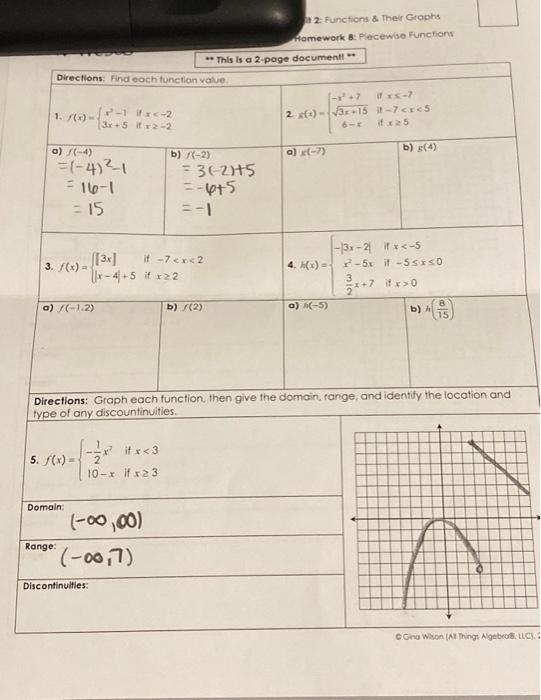 2: Functions & Their Graphs
Homework 8: Piecewise Functions
** This is a 2-page document! **
Directions: Find each function value.
1. f(x) = { x² − 1 if x < −2
3x + 5 if x ≥ −2
2. g(x) = { −x² + 7 if x ≤ −7
√3x + 15 if −7 < x < 5
6 − x if x ≥ 5
a) f(−4)
= (−4)² − 1
= 16 − 1
= 15
b) f(−2)
= 3(−2) + 5
= −6 + 5
= −1
a) g(−7)
b) g(4)
3. f(x) = { [3x] if −7 < x < 2
|x − 4| + 5 if x ≥ 2
4. h(x) = { −|3x − 2| if x < −5
x² − 5x if −5 ≤ x ≤ 0
3/2 x + 7 if x > 0
a) f(−1.2)
b) f(2)
a) h(−5)
b) h(8/15)
Directions: Graph each function, then give the domain, range, and identify the location and
type of any discontinuities.
5. f(x) = { −1/2 x² if x < 3
10 − x if x ≥ 3
Domain:
(−∞, ∞)
Range:
(−∞, 7)
Discontinuities:
© Gina Wilson (All Things Algebra®, LLC),